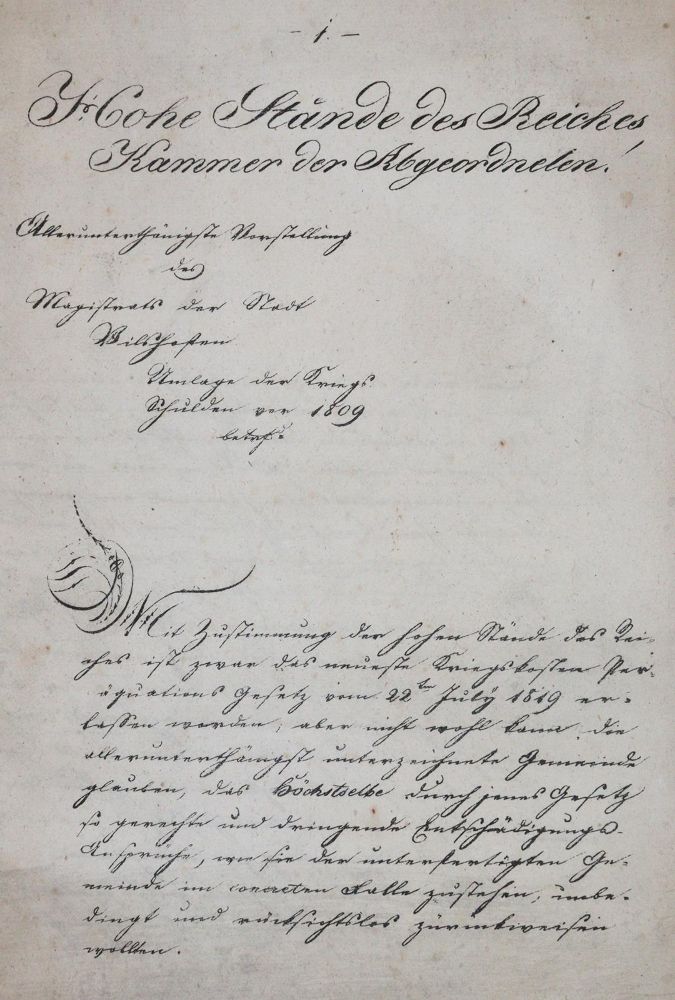 - 1. -
Hohe Stände des Reiches
Kammer der Abgeordneten!
Allerunterthänigste Vorstellung
des
Magistrats der Stadt
Vilshofen
Umlage der Kriegs
Schulden per 1809
betrf.
Mit Zustimmung der hohen Stände des Rei-
ches ist zwar das neueste Kriegskosten Per-
äquations Gesetz vom 22ten July 1819 er-
lassen worden; aber nicht wohl kann die
allerunterthänigst unterzeichnete Gemeinde
glauben, das Höchstselbe durch jenes Gesetz
so gerechte und dringende Entschädigungs-
Ansprüche, wie sie der unterfertigten Ge-
meinde im concreten Falle zustehen, unbe-
dingt und rücksichtslos zurückweisen
wollten.